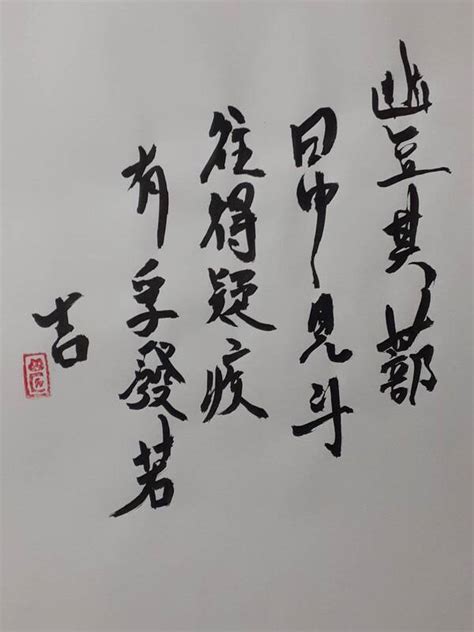 豐其蔀
日中見斗
往得疑疾
有孚發若
吉